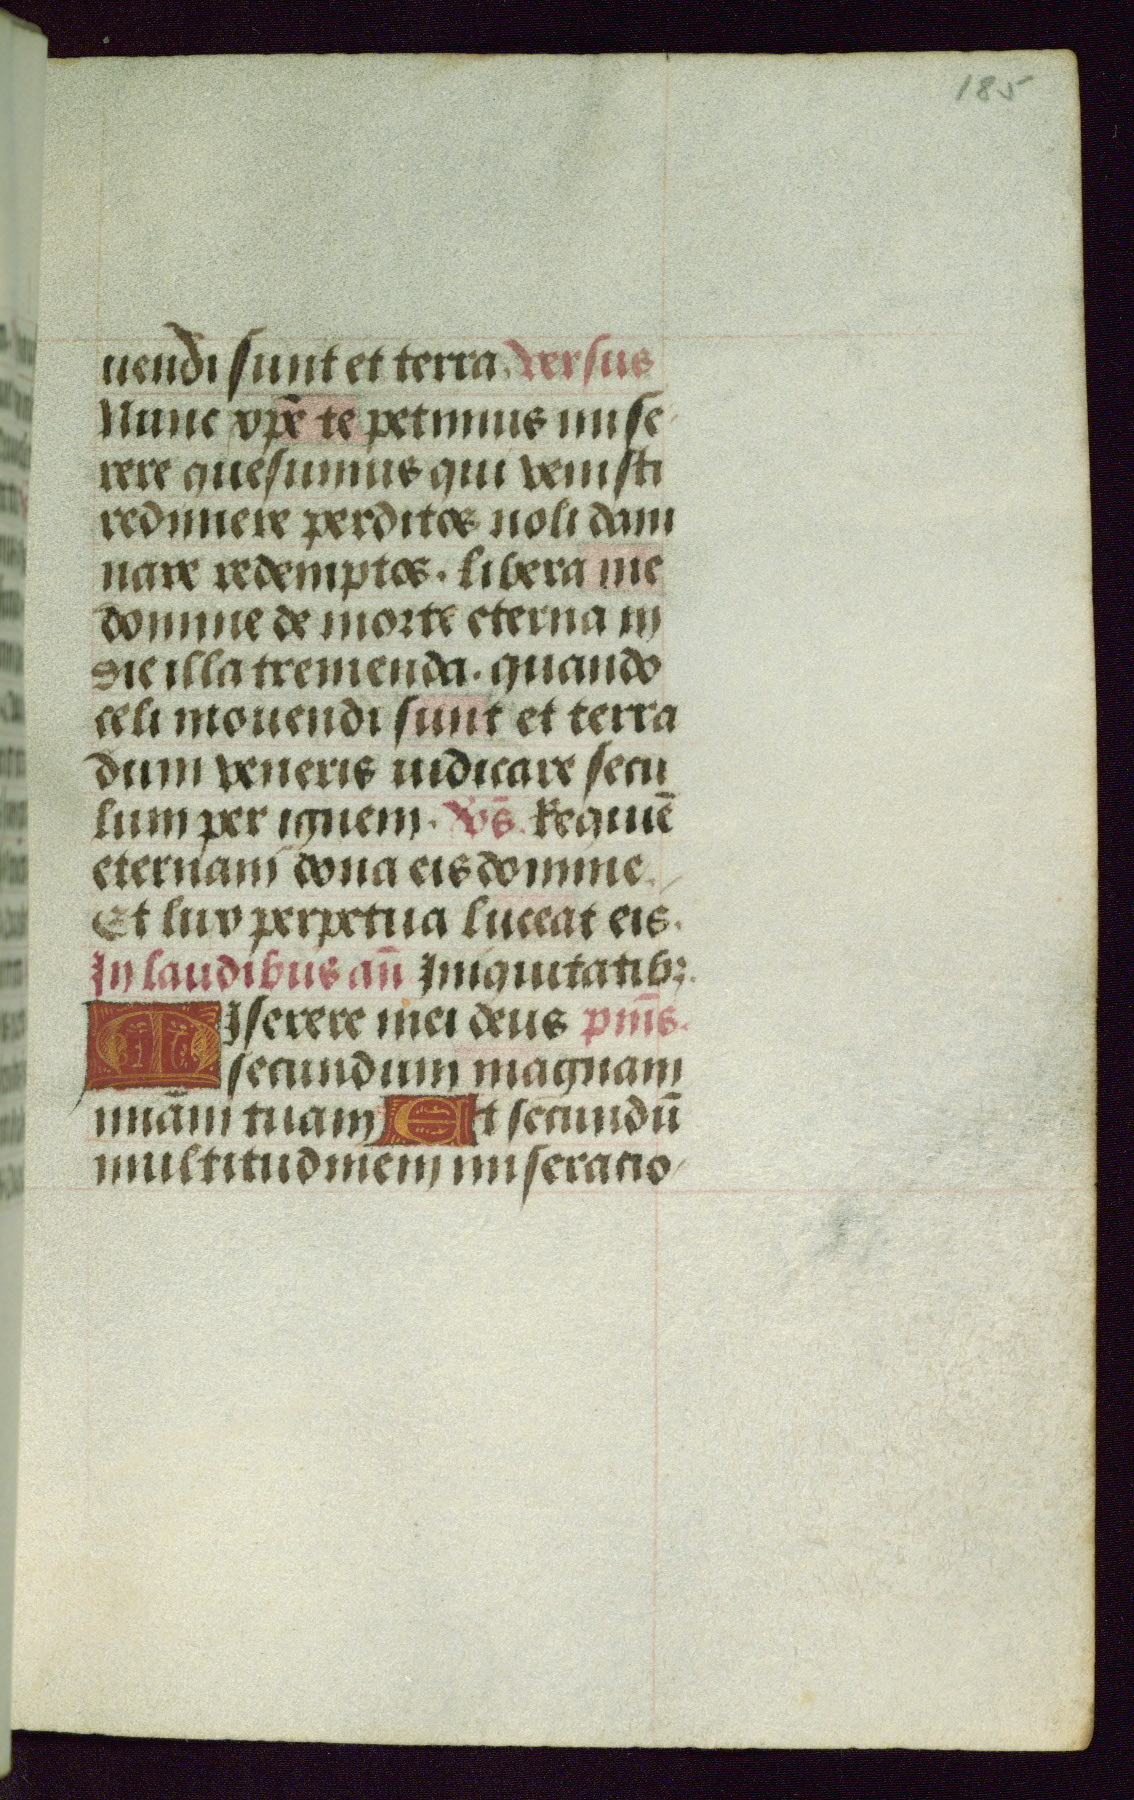 185
uendi sunt et terra. versus
Nunc xpē te petimus mise
rere quesumus qui venisti
redimere perditos noli dam
nare redemptos. libera me
domine de morte eterna in
die illa tremenda. quando
celi mouendi sunt et terra
dum veneris iudicare secu
lum per ignem. Vs̄. Requiē
eternam dona eis domine.
Et lux perpetua luceat eis.
In laudibus an̄ Iniquitatibꝫ.
MIserere mei deus pm̄s.
secundum magnam
miām tuam Et secundū
multitudinem miseratio